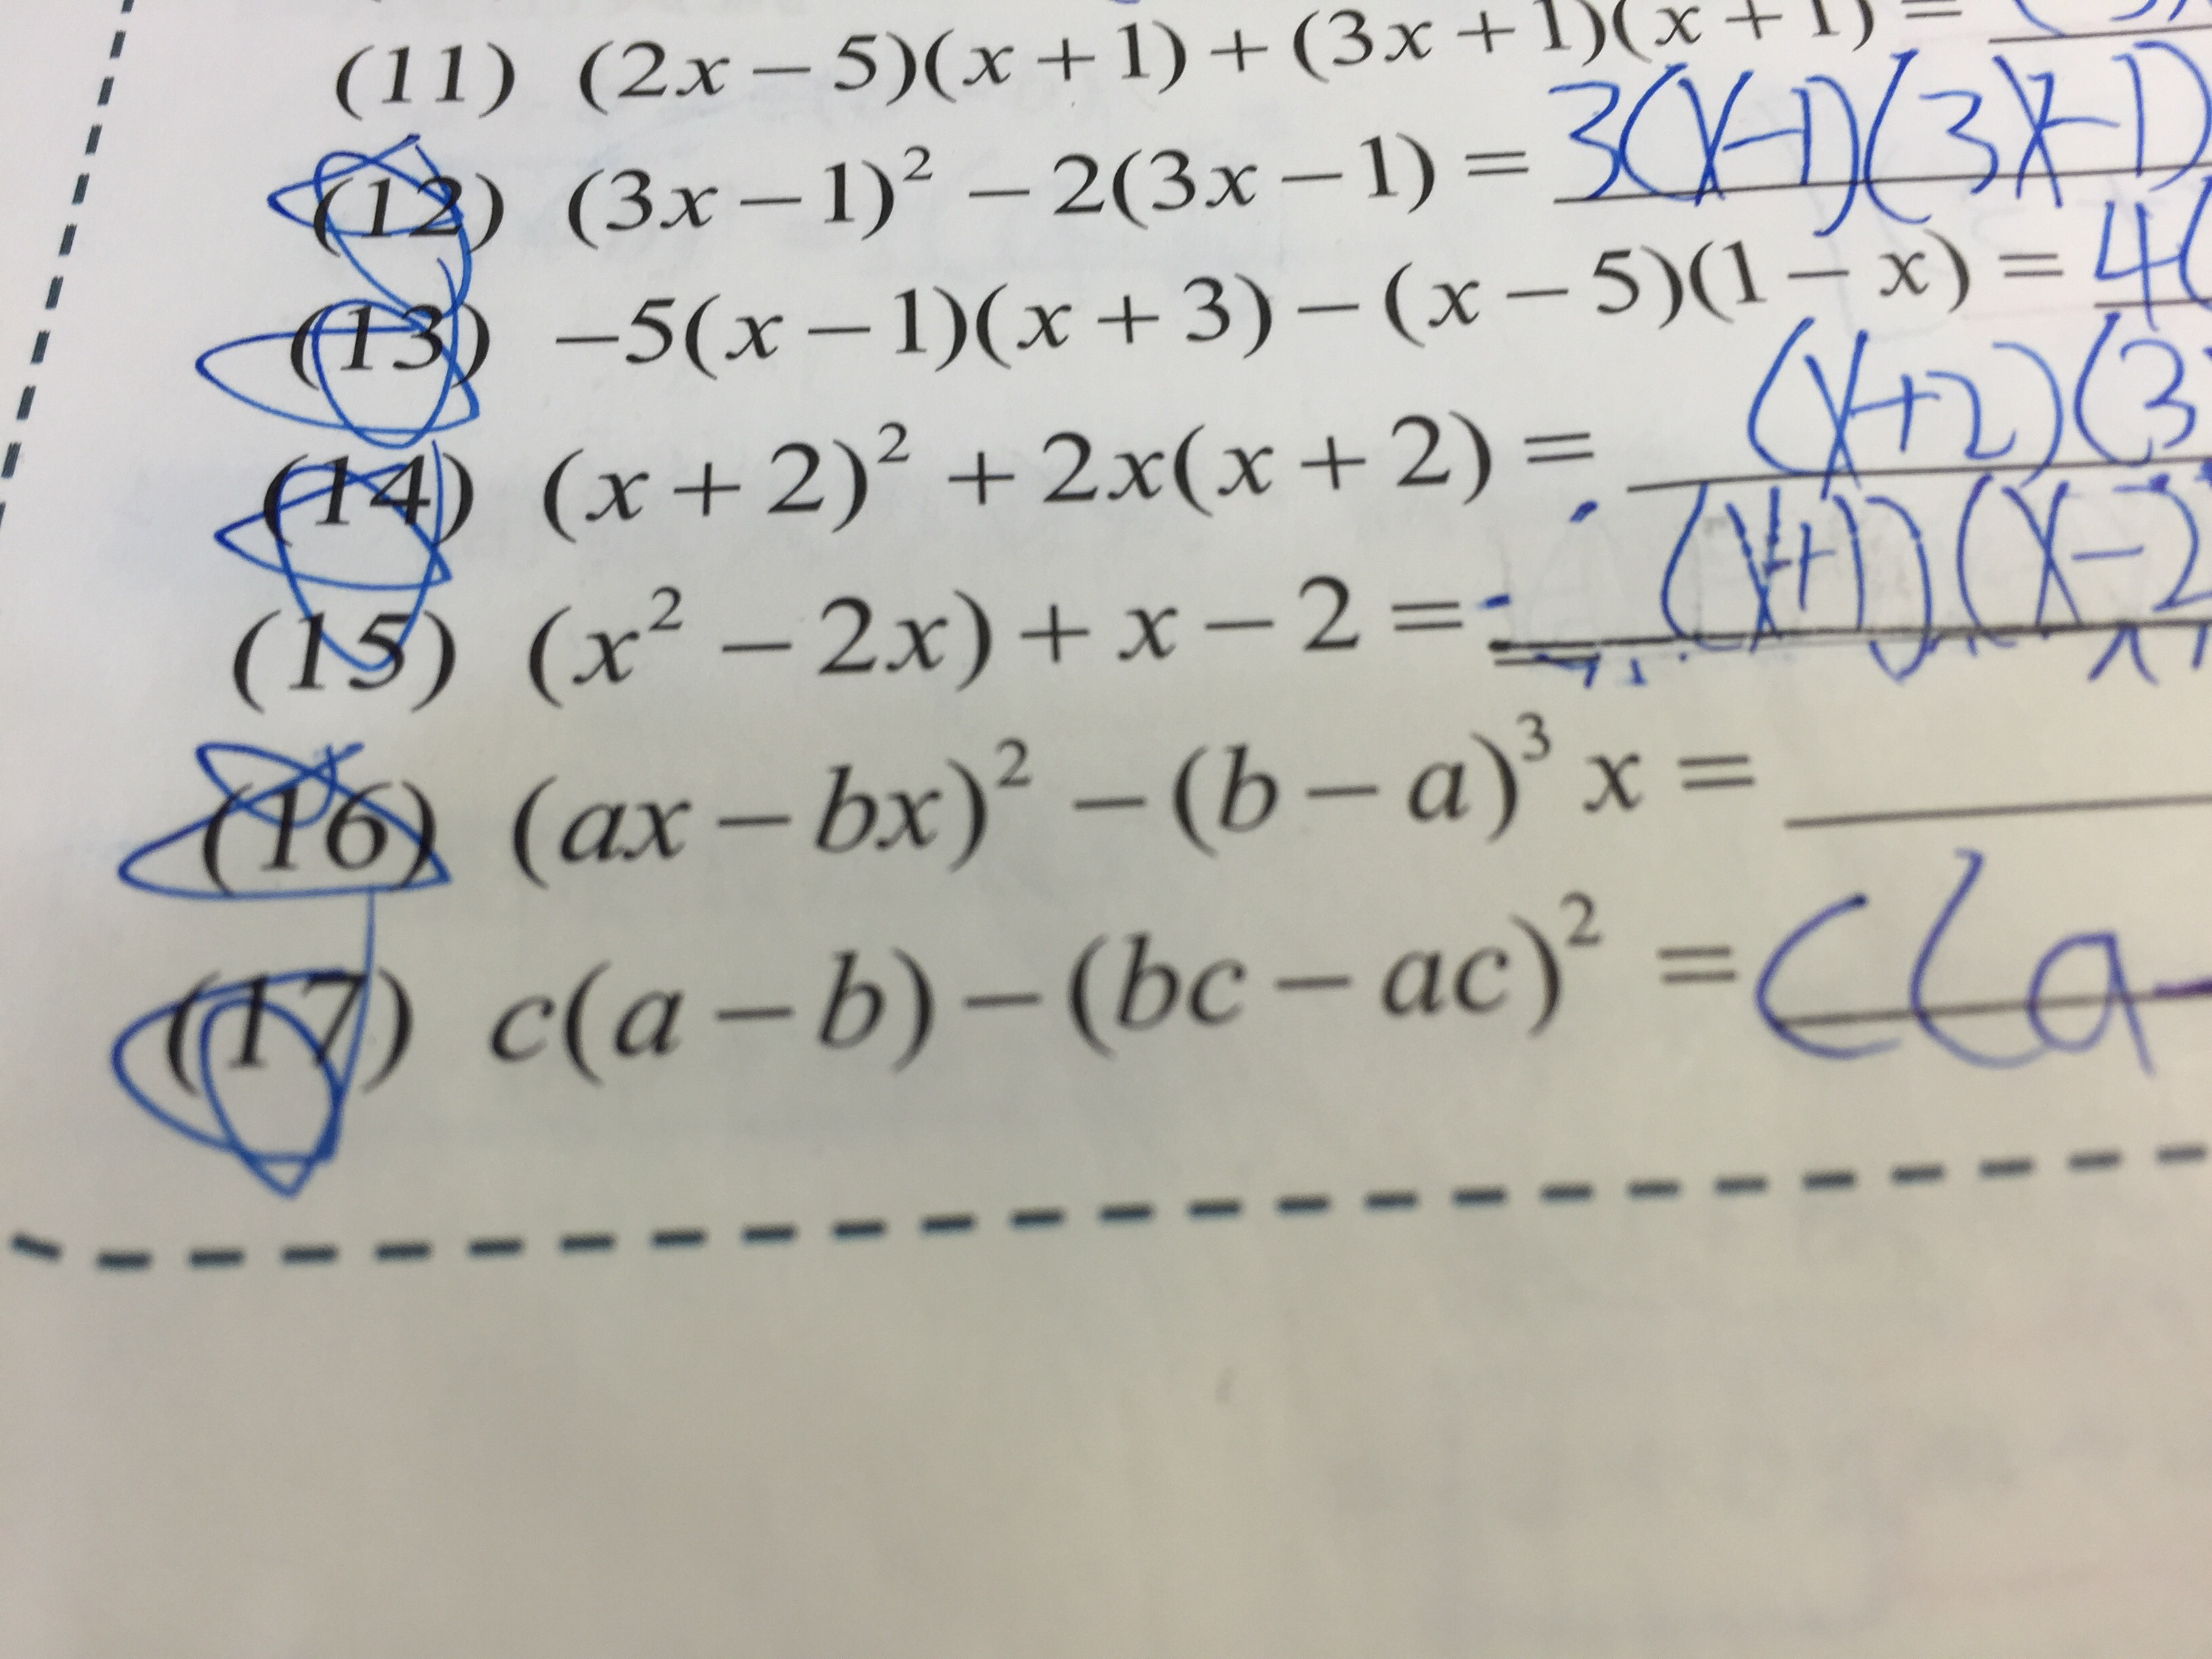 (11) (2x − 5)(x + 1) + (3x + 1)(x + 1) =
(12) (3x − 1)² − 2(3x − 1) = 3(x−1)(3x−1)
(13) −5(x − 1)(x + 3) − (x − 5)(1 − x) = 4(
(14) (x + 2)² + 2x(x + 2) = (x+2)(3
(15) (x² − 2x) + x − 2 = (x+1)(x−2
(16) (ax − bx)² − (b − a)³ x =
(17) c(a − b) − (bc − ac)² = c(a−